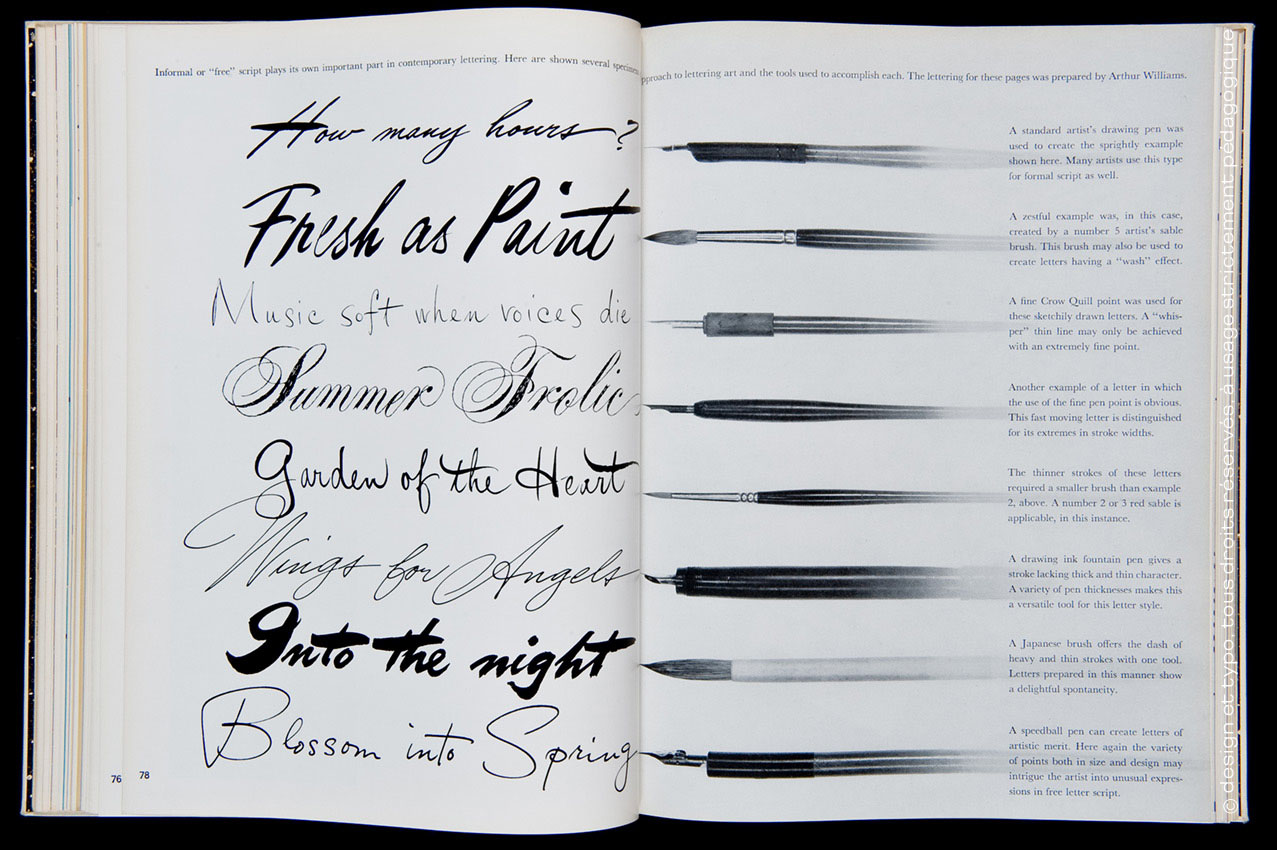 Informal or “free” script plays its own important part in contemporary lettering. Here are shown several specimen
pproach to lettering art and the tools used to accomplish each. The lettering for these pages was prepared by Arthur Williams.
How many hours?
Fresh as Paint
Music soft when voices die
Summer Frolic
Garden of the Heart
Wings for Angels
Into the night
Blossom into Spring
76
78
A standard artist’s drawing pen was
used to create the sprightly example
shown here. Many artists use this type
for formal script as well.
A zestful example was, in this case,
created by a number 5 artist’s sable
brush. This brush may also be used to
create letters having a “wash” effect.
A fine Crow Quill point was used for
these sketchily drawn letters. A “whis-
per” thin line may only be achieved
with an extremely fine point.
Another example of a letter in which
the use of the fine pen point is obvious.
This fast moving letter is distinguished
for its extremes in stroke widths.
The thinner strokes of these letters
required a smaller brush than example
2, above. A number 2 or 3 red sable is
applicable, in this instance.
A drawing ink fountain pen gives a
stroke lacking thick and thin character.
A variety of pen thicknesses makes this
a versatile tool for this letter style.
A Japanese brush offers the dash of
heavy and thin strokes with one tool.
Letters prepared in this manner show
a delightful spontaneity.
A speedball pen can create letters of
artistic merit. Here again the variety
of points both in size and design may
intrigue the artist into unusual expres-
sions in free letter script.
© design et typo, tous droits réservés à usage strictement pédagogique